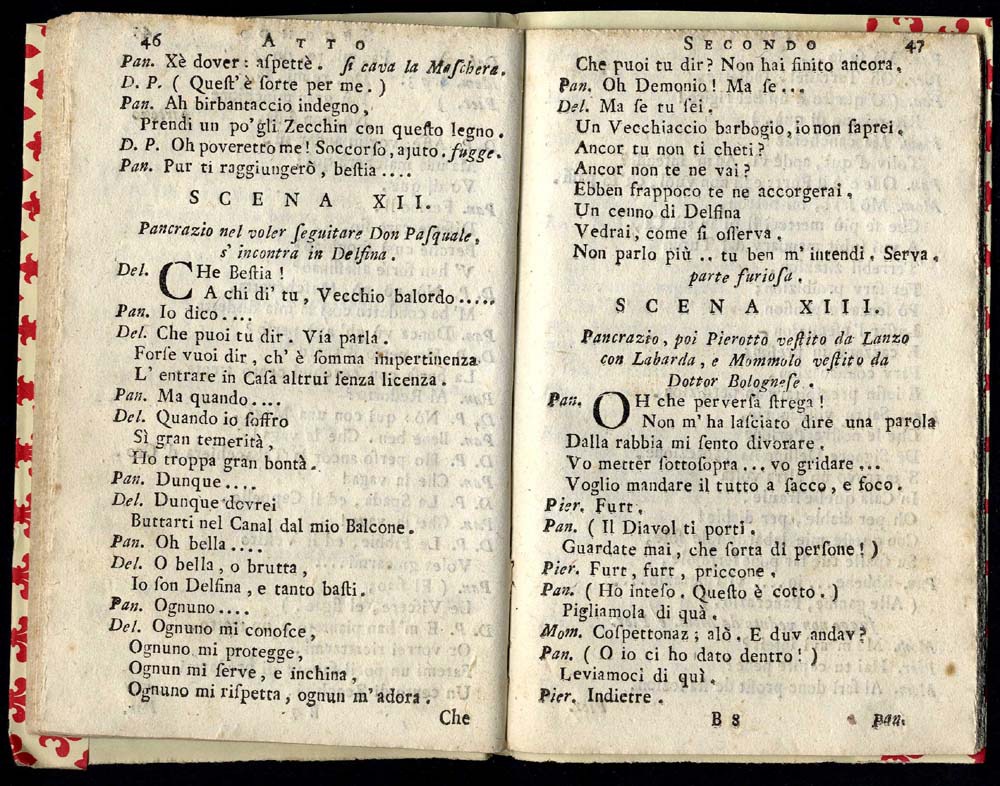 46 ATTO
Pan. Xè dover: aſpettè. ſi cava la Maſchera.
D. P. ( Queſt' è ſorte per me. )
Pan. Ah birbantaccio indegno,
Prendi un po' gli Zecchin con queſto legno.
D. P. Oh poveretto me! Soccorſo, ajuto. fugge.
Pan. Pur ti raggiungerò, beſtia ....
SCENA XII.
Pancrazio nel voler ſeguitare Don Paſquale,
s' incontra in Delfina.
Del. CHe Beſtia!
A chi di' tu, Vecchio balordo .....
Pan. Io dico ....
Del. Che puoi tu dir. Via parla.
Forſe vuoi dir, ch' è ſomma impertinenza
L' entrare in Caſa altrui ſenza licenza.
Pan. Ma quando ....
Del. Quando io ſoffro
Sì gran temerità,
Ho troppa gran bontà.
Pan. Dunque ....
Del. Dunque dovrei
Buttarti nel Canal dal mio Balcone.
Pan. Oh bella ....
Del. O bella, o brutta,
Io ſon Delfina, e tanto baſti.
Pan. Ognuno ....
Del. Ognuno mi conoſce,
Ognuno mi protegge,
Ognun mi ſerve, e inchina,
Ognuno mi riſpetta, ognun m'adora.
Che
SECONDO 47
Che puoi tu dir? Non hai finito ancora.
Pan. Oh Demonio! Ma ſe ...
Del. Ma ſe tu ſei.
Un Vecchiaccio barbogio, io non ſaprei.
Ancor tu non ti cheti?
Ancor non te ne vai?
Ebben frappoco te ne accorgerai.
Un cenno di Delfina
Vedrai, come ſi oſſerva.
Non parlo più .. tu ben m' intendi. Serva.
parte furioſa.
SCENA XIII.
Pancrazio, poi Pierottò veſtito da Lanzo
con Labarda, e Mommolo veſtito da
Dottor Bologneſe.
Pan. OH che perverſa ſtrega!
Non m' ha laſciato dire una parola
Dalla rabbia mi ſento divorare.
Vo metter ſottoſopra ... vo gridare ...
Voglio mandare il tutto a ſacco, e foco.
Pier. Furt.
Pan. ( Il Diavol ti porti.
Guardate mai, che ſorta di perſone! )
Pier. Furt, furt, priccone.
Pan. ( Ho inteſo. Queſto è cotto. )
Pigliamola di quà.
Mom. Coſpettonaz; alò. E duv andav?
Pan. ( O io ci ho dato dentro! )
Leviamoci di quì.
Pier. Indietre.
B 8 Pan.